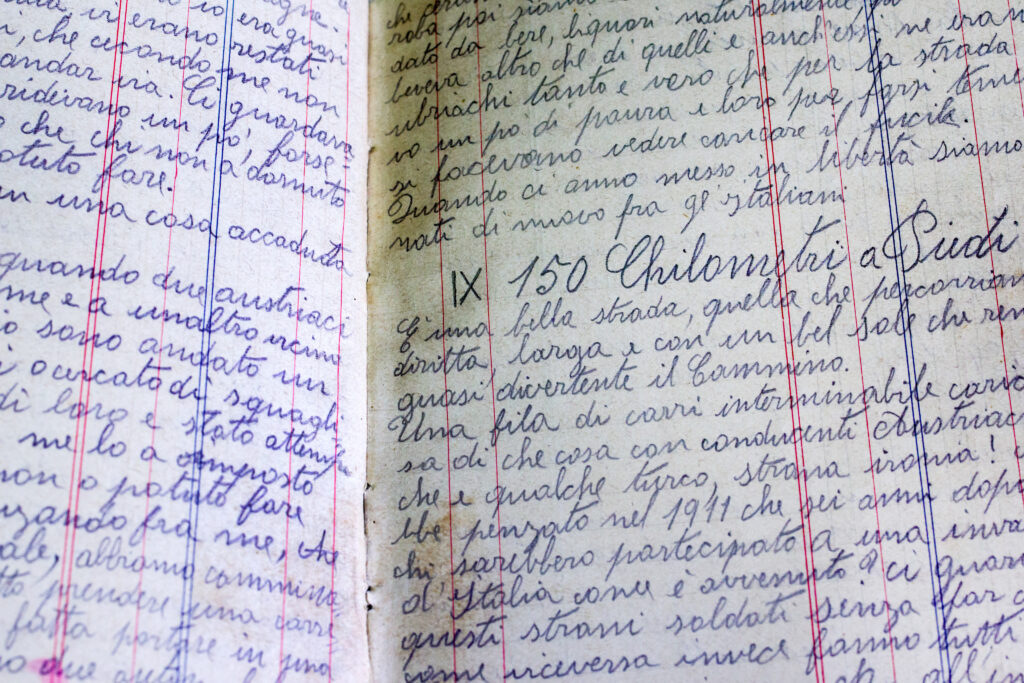 io era quasi
vi erano restati
che secondo me non
andar via. Ci guardava
ridevano un po', forse
che chi non a dormito
potuto fare.
una cosa accaduta
quando due austriaci
me e a unaltro vicino
sono andato un
o cercato di squagli
di loro e stato attenti
me lo a imposto
non o potuto fare
fra me, che
abbiamo cammina
prendere una carre
fatta portare in una
due
che
roba poi siamo
dato da bere, liquori naturalmente
beveva altro che di quelli e anch'essi ne eran
ubriachi tanto e vero che per la strada
vo un po' di paura e loro per farsi teme
si facevano vedere caricare il fucile.
Quando ci anno messo in libertà siamo
nati di nuovo fra gl' Italiani
IX 150 Chilometri a Piedi
E' una bella strada, quella che percorriam
diritta, larga e con un bel sole che ren
quasi divertente il Cammino.
Una fila di carri interminabile caric
sa di che cosa con conducenti Austriac
che e qualche turco, strana ironia!
bbe penzato nel 1911 che sei anni dopo
chi sarebbero partecipato a una inva
d'Italia come è avvenuto? ci guar
questi strani soldati senza far
come viceversa invece fanno tutti